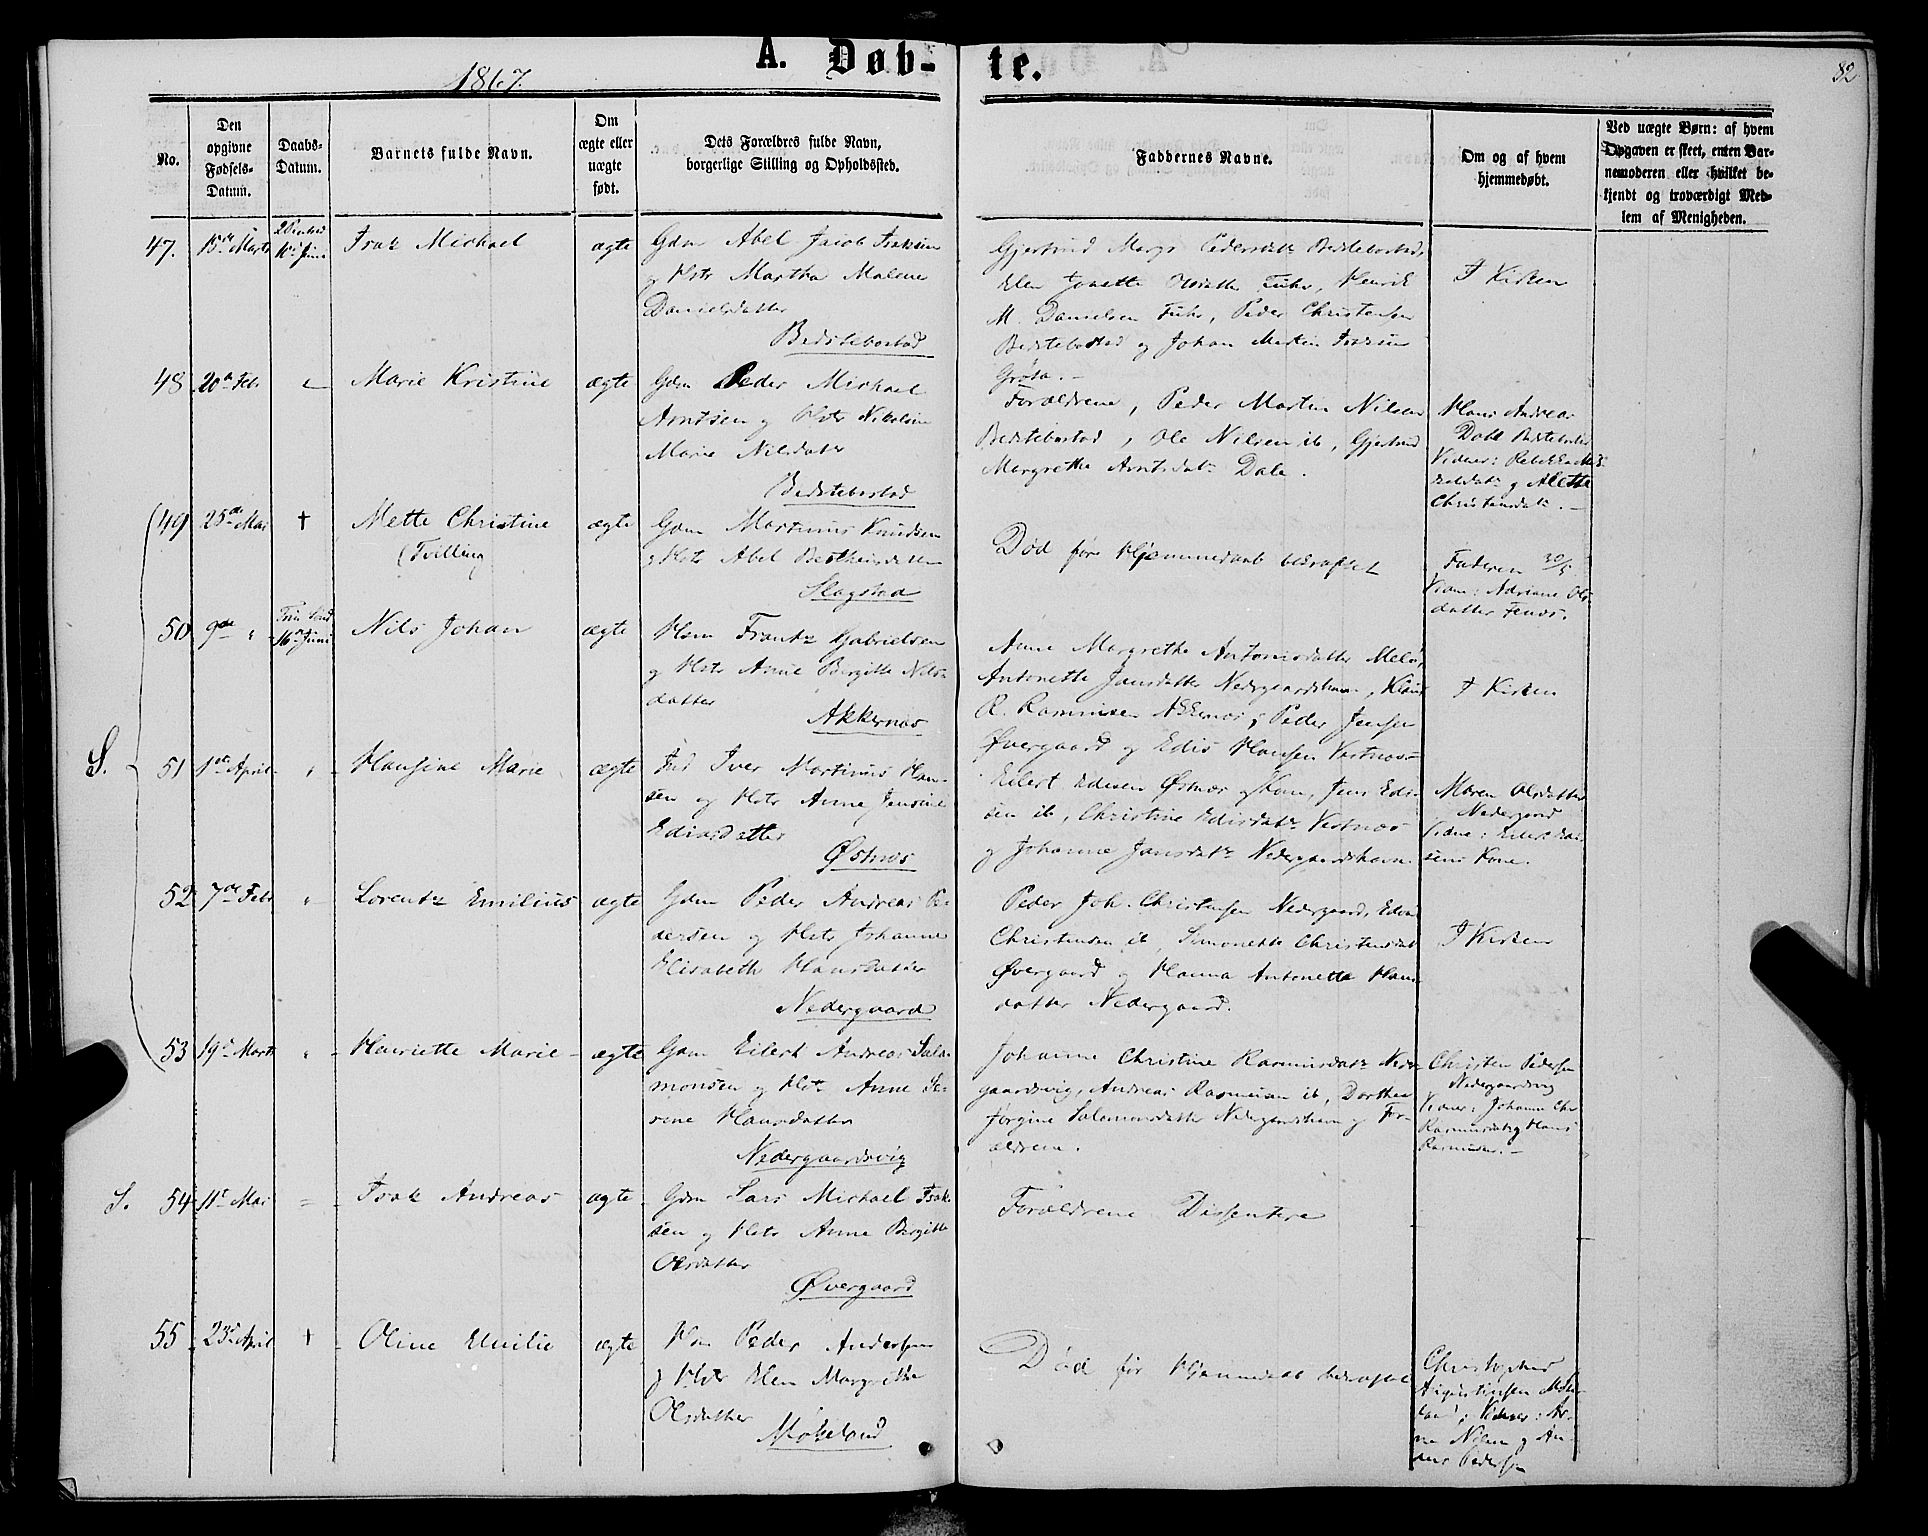 A. Døb-
te.
82
1867.
No.
Den opgivne Fødsels-Datum.
Daabs-Datum.
Barnets fulde Navn.
Om ægte eller uægte født.
Dets Forældres fulde Navn, borgerlige Stilling og Opholdssted.
Faddernes Navne.
Om og af hvem hjemmedøbt.
Ved uægte Børn: af hvem
Opgaven er skeet, enten Bar-
nemoderen eller hvilket be-
kjendt og troværdigt Med-
lem af Menigheden.
47. 15de Marts 10de Juni Isak Michael ægte Gdm Abel Jacob Isaksen
og Hstr Martha Malene
Danielsdatter
Bedstebostad
Gjertrud Margr Pedersdatr Bedstebostad,
Elen Jonette Fuhr, Henrik
M. Danielsen Fuhr, Peder Christensen
Bedstebostad og Johan Martin Isaksen
Grøsn.
I Kirken
48 20de Febr Marie Kristine ægte Gdm Peder Michael
Arntsen og Hstr Nikoline
Marie Nilsdatr
Bedstebostad
Forældrene, Peder Martin Nilsen
Bedstebostad, Ole Nilsen ib, Gjertrud
Margrethe Arntsdatr Dale.
Hans Andreas
Dahl Bedstebostad
Vidner: Rebekka
og Alette
Christensdatr.
49 25de Mai † Mette Christine ægte Gdm Martinus Knudsen
(Tvilling
og Hstr Abel
Slagstad
Død før Hjemmedaab bekræftet
Faderen 30/5
Vidne: Adriane Ols-
datter Fenes.
50 9de " 16de Juni Nils Johan ægte Hsm Frantz Gabrielsen
og Hstr Anne Bergitte Nils-
datter
Akkernæs
Anne Margrethe Antonisdatter Melø,
Antonette Jansdatter Nedrgaardshavn,
R. Rasmusen Akkernæs, Peder Jensen
Øvergaard og Edis Hansen Vestnæs
I Kirken
S. 51 1ste April " Hansine Marie ægte Ind Iver Martinus Han-
sen og Hstr Anne Jensine
Ediasdatter
Østnæs
Eilert Edisen Østnæs og Kone, Jens Edi-
sen ib, Christine Edisdatr Vestnæs
og Johanne Jansdatr Nedergaardshavn.
Maren Olsdatter
Nedergaard
Vidne: Eilert Edi-
sens Kone.
52 7de Febr " Lorentz Emilius ægte Gdm Peder Andreas Pe-
dersen og Hstr Johanne
Elisabeth Hansdatter
Nedergaard
Peder Joh. Christensen Nedergaard,
Christensen ib, Simonette Christensdatr
Øvergaard og Hanna Antonette Hans-
datter Nedergaard.
I Kirken
53 19de Marts " Henriette Marie ægte Gdm Eilert Andreas Salo-
monsen og Hstr Anne Se-
rene Hansdatter
Nedergaardsvig
Johanne Christine Rasmusdatr Neder-
gaardsvig, Andreas Rasmusen ib, Dorthea
Jørgine Salomonsdatter Nedergaardshavn og For-
ældrene.
Christen Pedersen
Nedergaardsvig
Vidner: Johanne Chr
Rasmusdatr og Hans
Rasmusen.
S. 54 11te Mai " Isak Andreas ægte Gdm Lars Michael Isak-
sen og Hstr Anne Bergitte
Olsdatter
Øvergaard
Forældrene Dissentere
55 23de April † Oline Emilie ægte Hsm Peder Andersen
og Hstr Elen Margrethe
Olsdatter
Møkeland
Død før Hjemmedaab bekræftet
Christopher
Augustinsen Møke-
land; Vidner: Ar-
ne Nilsen og An-
ders Pedersen